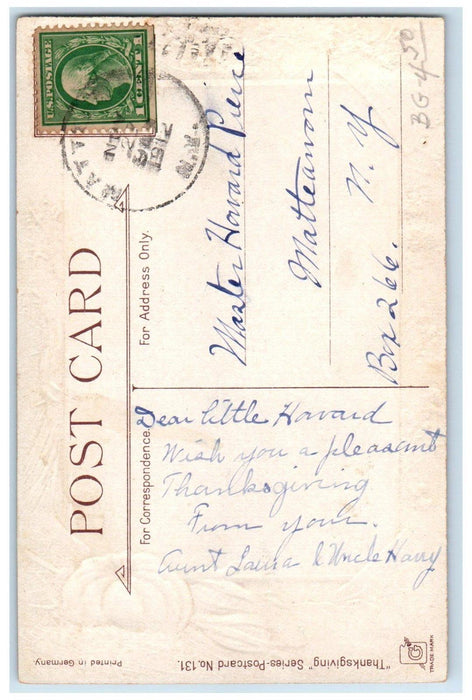 U.S. POSTAGE
1 CENT 1
BG 4 50
POST CARD
For Address Only.
Master Howard Pierce
Matteawan
Box 266. N. Y
For Correspondence.
Dear little Howard
Wish you a pleasant
Thanksgiving
From your.
Aunt Laura & Uncle Harry
"Thanksgiving" Series-Postcard No. 131.
Printed in Germany
TRADE MARK